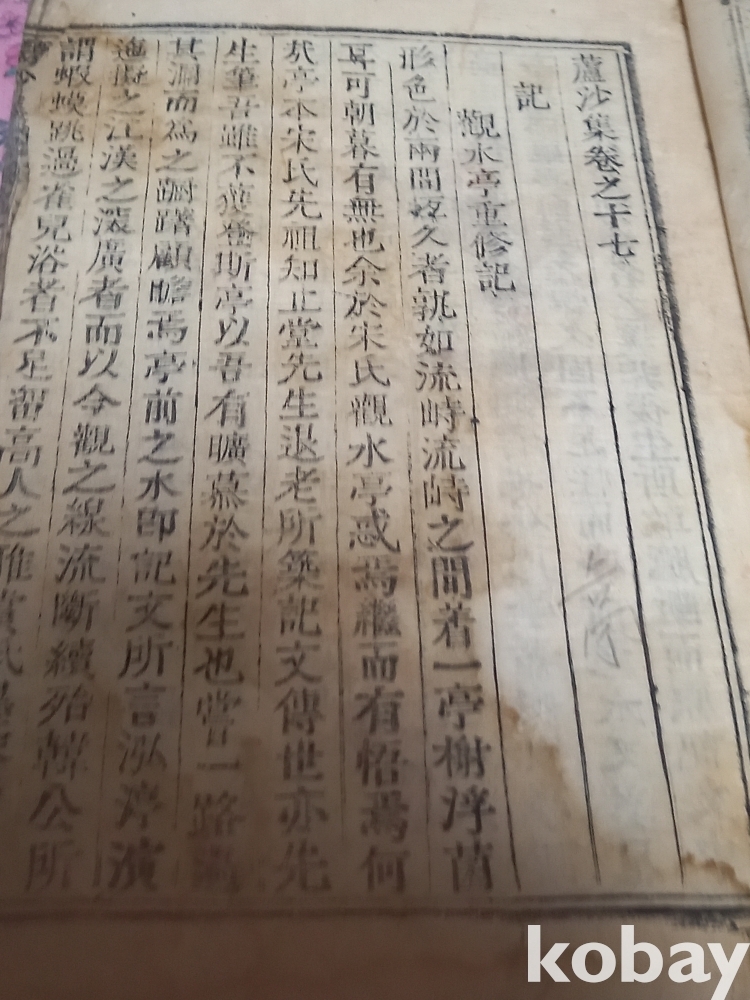 蘆沙集卷之十七
記
觀水亭重修記
形色於兩間悠久者孰如流峙流峙之間着一亭榭浮菌
耳可朝暮有無也余於宋氏觀水亭惑焉繼而有悟焉何
哉亭本宋氏先祖知止堂先生退老所築記文傳世亦先
生筆吾雖不獲登斯亭以吾有曠慕於先生也嘗一路
其洞而爲之躕躇顧瞻焉亭前之水即記文所言泓渟演
迤擬之江漢之深廣者而以今觀之線流斷續殆韓公所
謂蝦蟆跳過雀兒浴者不足留高人之雅賞
kobay